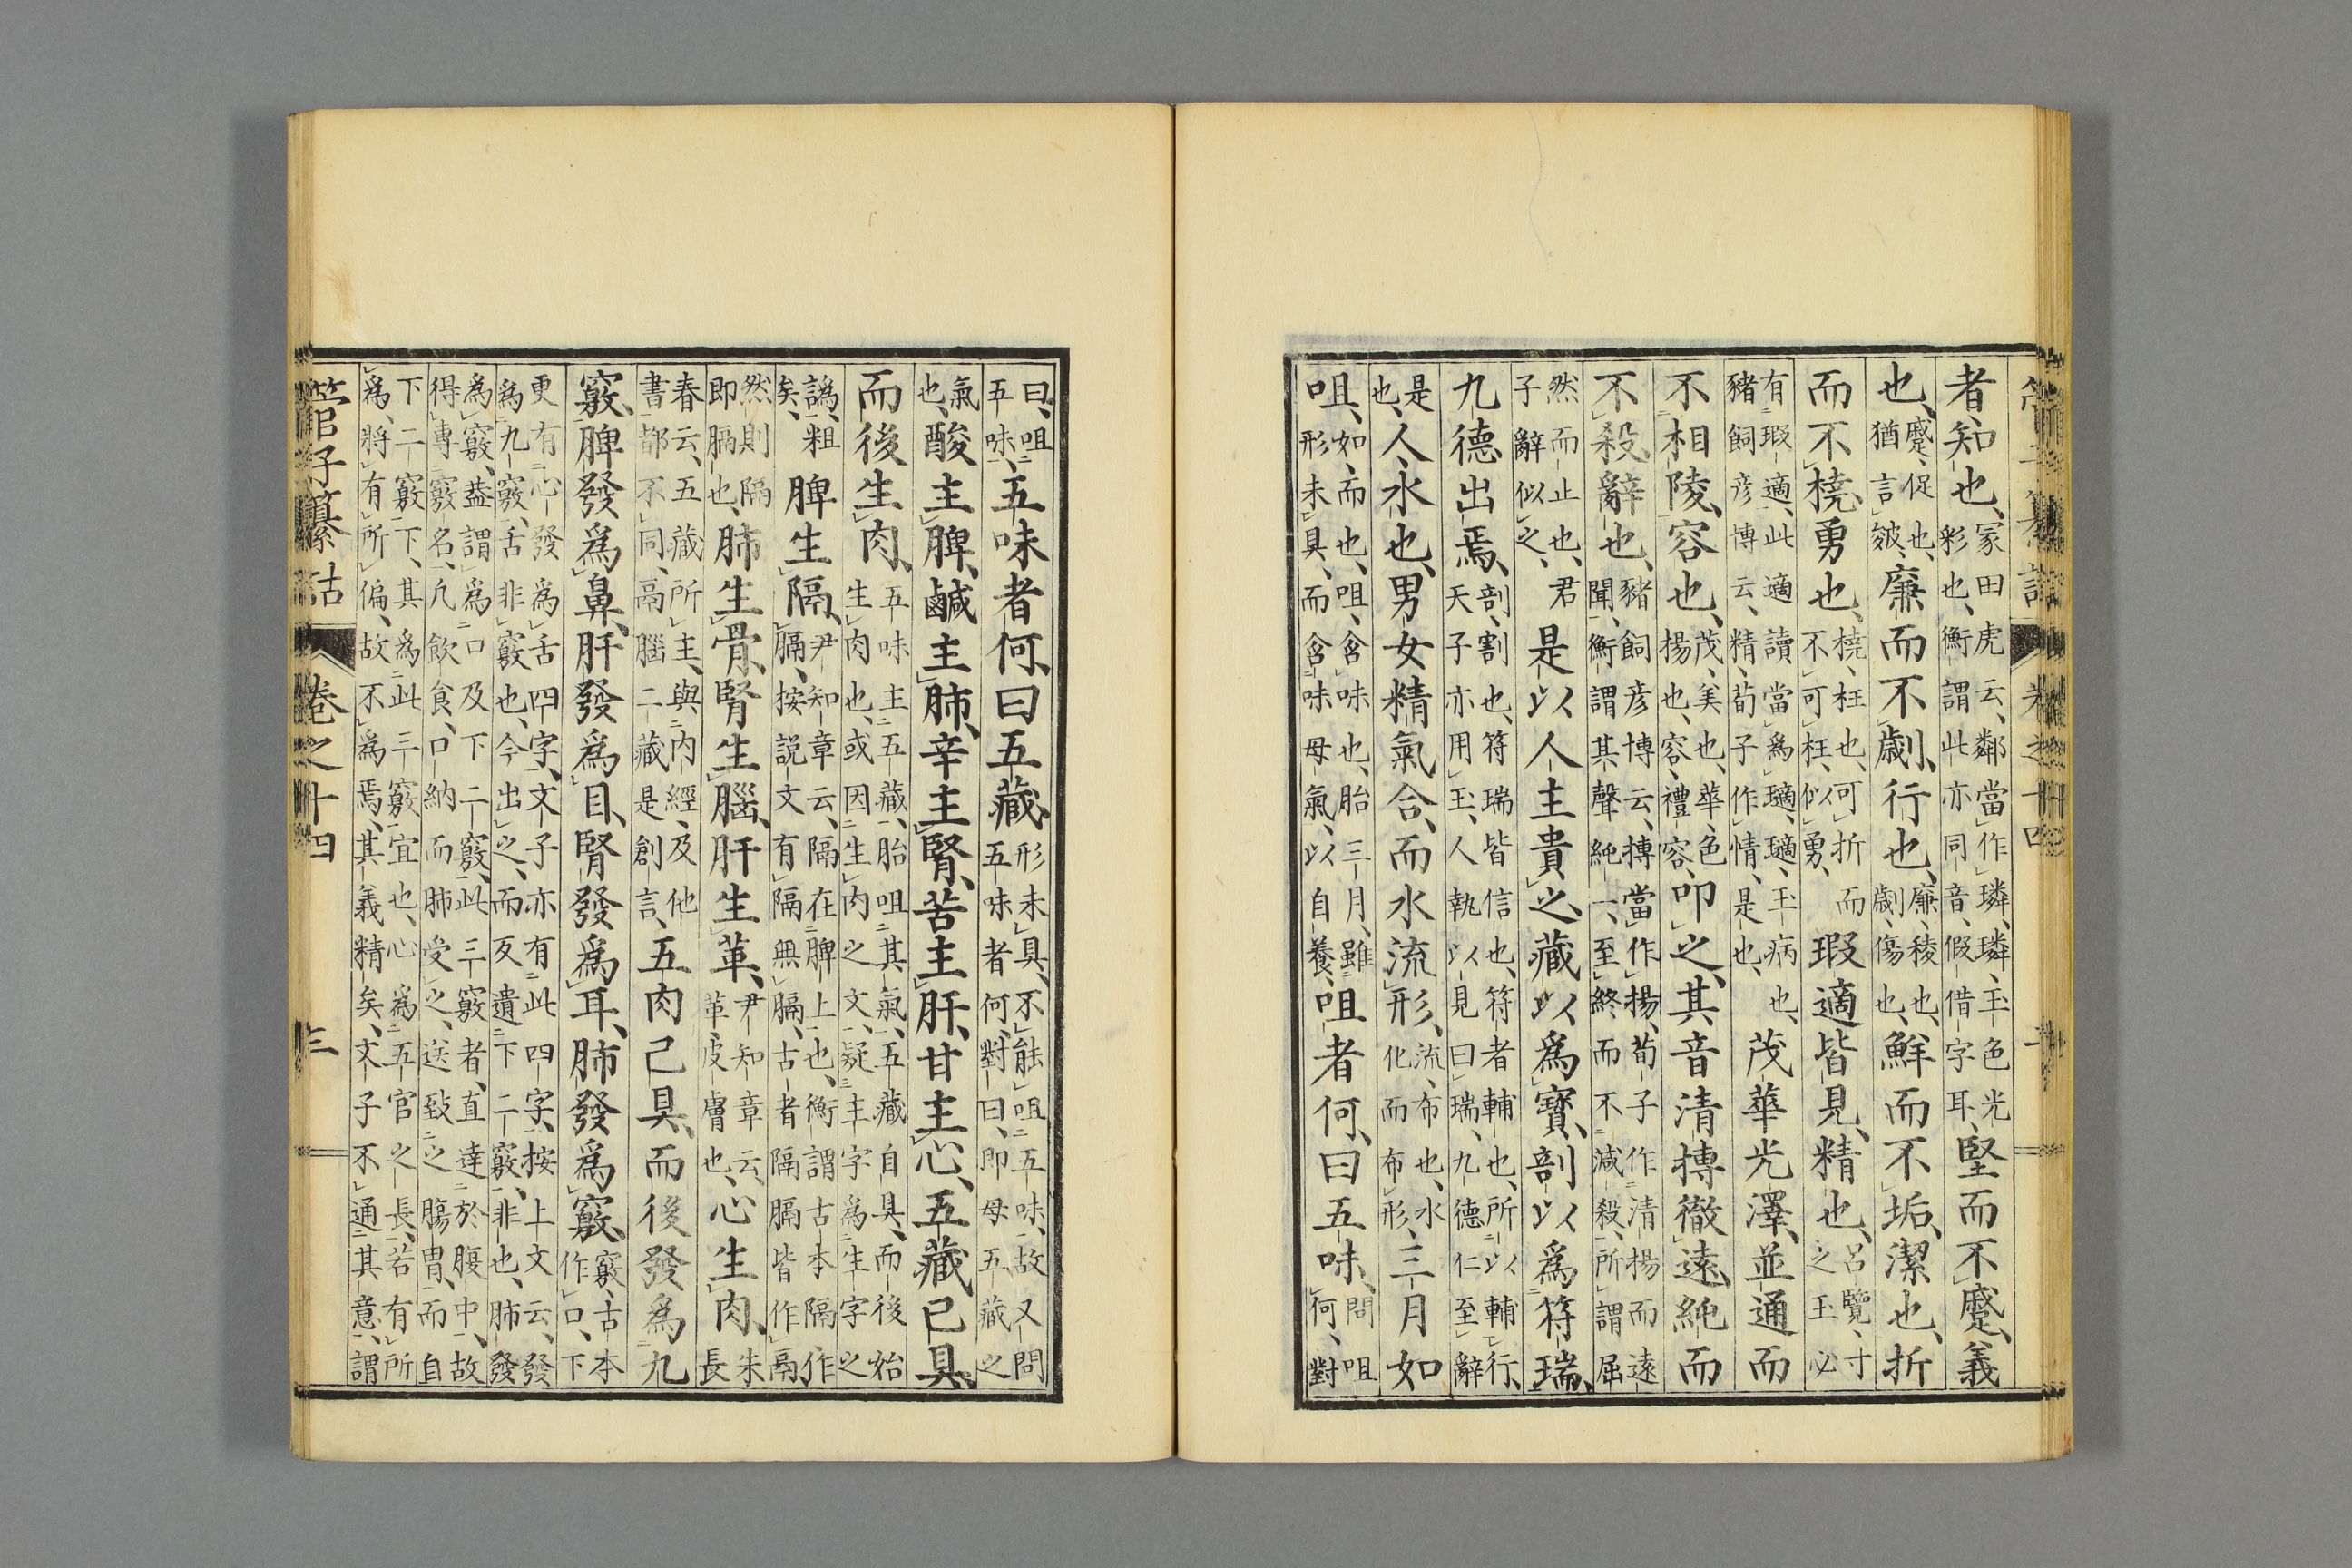 者、知也、冢田虎云、鄰當作璘、璘、玉色光
彩也、衡謂此亦同音、假借字耳、堅而不蹙、義
也、蹙、促也、
猶言皴、廉而不劌、行也、廉、稜也、
劌、傷也、鮮而不垢、潔也、折
而不橈、勇也、橈、枉也、可折而
不可枉、似勇、瑕適皆見、精也、呂覽、寸
之玉必
有瑕適、此適讀當爲瓋、瓋、玉病也、
豬飼彥博云、精、荀子作情、是也、茂華光澤、並通而
不相陵、容也、茂、美也、華、色
揚也、容、禮容、叩之、其音清摶徹遠、純而
不殺、辭也、豬飼彥博云、摶當作揚、荀子作清揚而遠
聞、衡謂其聲純一、至終而不減殺、所謂屈
然而止也、君
子辭似之、是以人主貴之、藏以爲寶、剖以爲符瑞、
九德出焉、剖、割也、符瑞皆信也、符者輔也、所以輔行、
天子亦用玉、人執以見曰瑞、九德仁至辭
是
也、人、水也、男女精氣合、而水流形、流、布也、水
化而布形、三月如
咀、如、而也、咀、含味也、胎三月、雖
形未具、而含味母氣、以自養、咀者何、曰五味、問咀
何、對
曰、咀
五味、五味者何、曰五藏、形未具、不能咀五味、故又問
五味者何、對曰、即母五藏之
氣
也、酸主脾、鹹主肺、辛主腎、苦主肝、甘主心、五藏已具、
而後生肉、五味主五藏、胎咀其氣、五藏自具、而後始
生肉也、或因生肉之文、疑主字爲生字之
譌、粗
矣、脾生隔、尹知章云、隔在脾上也、衡謂古本隔作
膈、按說文有隔無膈、古者隔膈皆作鬲、
然則隔
即膈也、肺生骨、腎生腦、肝生革、尹知章云、
革、皮膚也、心生肉、朱
長
春云、五藏所主、與內經、及他
書都不同、鬲腦二藏是創言、五肉已具、而後發爲九
竅、脾發爲鼻、肝發爲目、腎發爲耳、肺發爲竅、竅、古本
作口、下
更有心發爲舌四字、文子亦有此四字、按上文云、發
爲九竅、舌非竅也、今出之、而反遺下二竅、非也、肺發
爲竅、葢謂爲口及下二竅、此三竅者、直達於腹中、故
得專竅名、凡飲食、口納而肺受之、送致之腸胃、而自
下二竅下、其爲此三竅宜也、心爲五官之長、若有所
爲、將有所偏、故不爲焉、其義精矣、文子不通其意、謂
管子纂詁 卷之十四 三